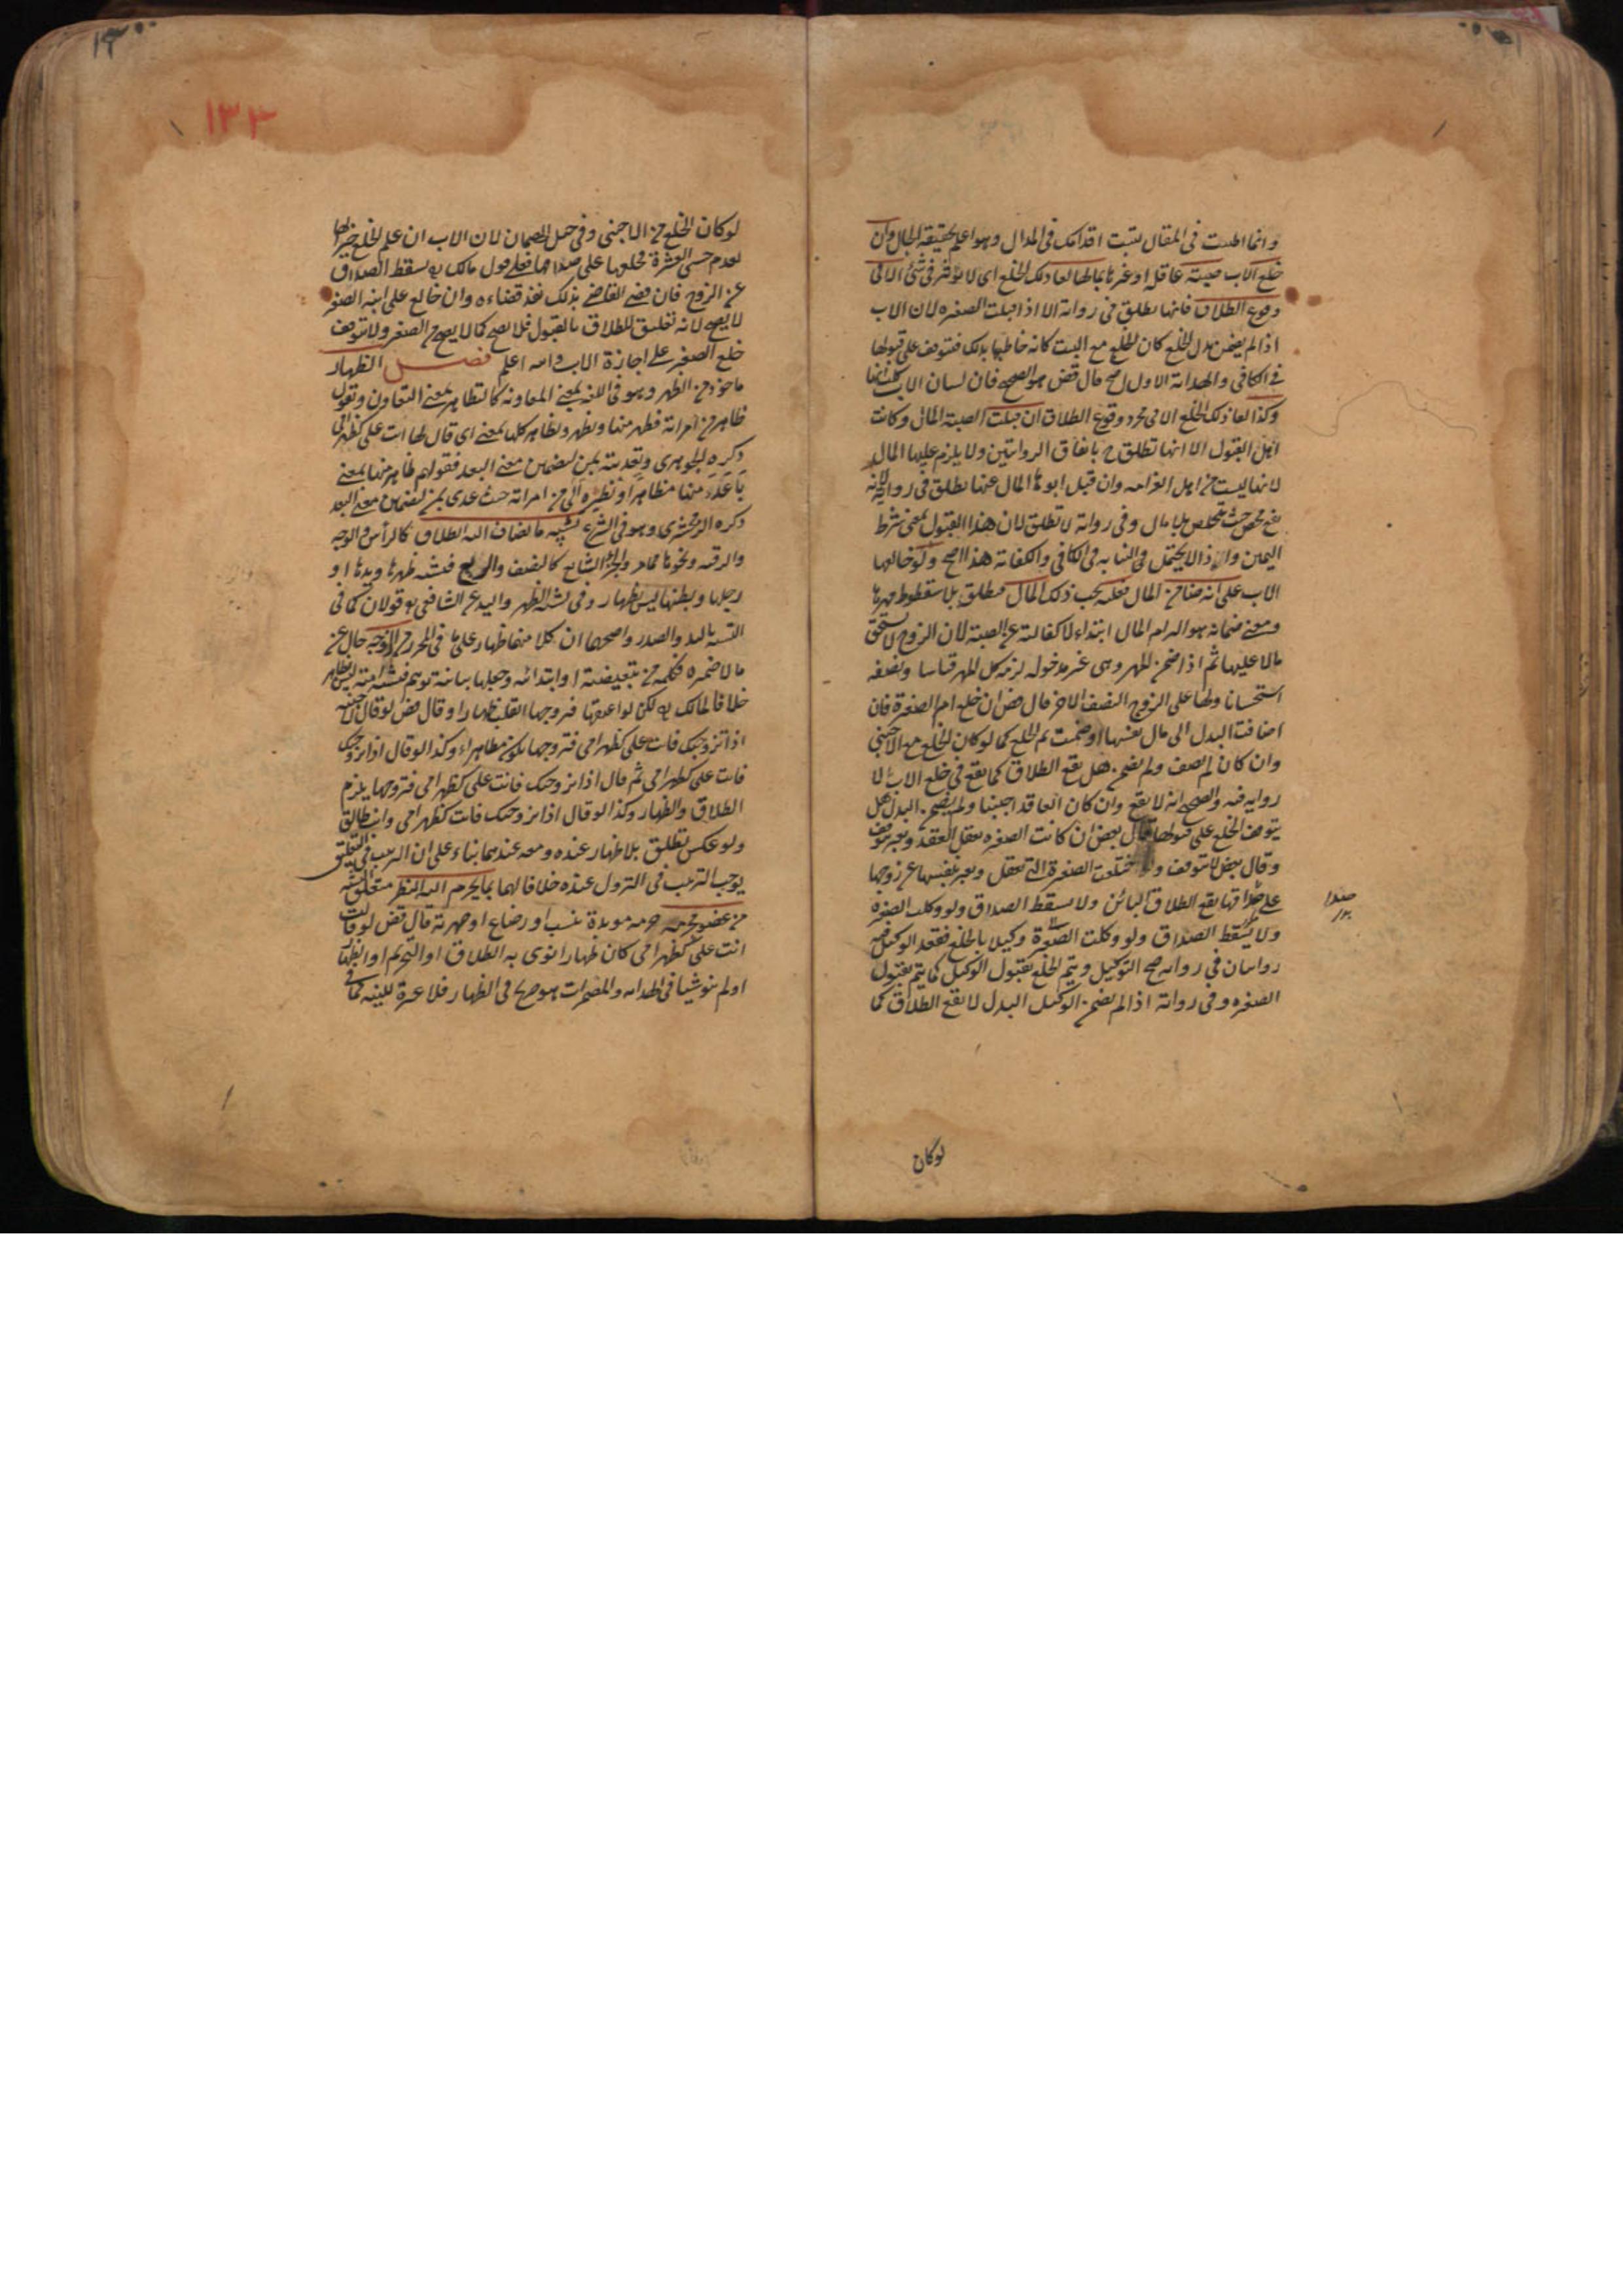 وانما اطنبت فى المقال لتثبت اقدامك فى المدال وهو اعلم بحقيقة الحال وان
خلع الاب صبيته عاقلة او غيرها بمالها لغا ذلك الخلع اى لا يؤثر فى شئ الا فى
وقوع الطلاق فانها تطلق فى رواية الا اذا قبلت الصغيره لان الاب
اذا لم يضمن بدل الخلع كان الخلع مع البنت كانه خاطبها بذلك فتتوقف على قبولها
فى الكافى والهداية الاول اصح قال قض هو الصحيح فان لسان الاب كلسانها
وكذا لغا ذلك الخلع الا فى مجرد وقوع الطلاق ان قبلت الصبية المال وكانت
اهل القبول الا انها تطلق ح باتفاق الروايتين ولا يلزم عليها المال
لانها ليست من اهل الغرامه وان قبل ابوها المال عنها تطلق فى رواية لانه
نفع محض حيث تتخلص بلا مال وفى رواية لا تطلق لان هذا القبول بمعنى شرط
اليمين وانه لا يحتمل النيابة فى الكافى والكفاية هذا اصح ولو خالعها
الاب على انه ضامن المال فعليه يجب ذلك المال فتطلق بلا سقوط مهرها
ومعنى ضمانه هو التزام المال ابتداء لا كفالته عن الصبية لان الزوج لا يستحق
مالا عليها ثم اذا ضمن المهر وهى غير مدخوله لزمه كل المهر قياسا ونصفه
استحسانا ولها على الزوج النصف الاخر قال قض ان خلع ام الصغيرة فان
اضافت البدل الى مال نفسها او ضمنت تم الخلع كما لو كان الخلع مع الاجنبى
وان كان لم تضف ولم تضمن هل يقع الطلاق كما يقع فى خلع الاب لا
رواية فيه والصحيح انه لا يقع وان كان العاقد اجنبيا ولم يضمن البدل هل
يتوقف الخلع على قبولها قال بعض ان كانت الصغيره تعقل العقد وتعبر يتوقف
وقال بعض لا يتوقف واذا اختلعت الصغيرة التى تعقل وتعبر بنفسها عن زوجها
على صداقها يقع الطلاق البائن ولا يسقط الصداق ولو وكلت الصغيره
ولا يسقط الصداق ولو وكلت الصغيرة وكيلا بالخلع ففعل الوكيل فيه
روايتان فى رواية صح التوكيل ويتم الخلع بقبول الوكيل كما يتم بقبول
الصغيره وفى رواية اذا لم يضمن الوكيل البدل لا يقع الطلاق كما
لوكان
١٣٣
لو كان الخلع من الاجنبى وفى حمل الضمان لان الاب ان علم الخلع خيرا لها
لعدم حسن العشرة فخلعها على صداقها فعلى قول مالك يسقط الصداق
عن الزوج فان قضى القاضى بذلك نفذ قضاءه وان خالع على ابنه الصغير
لا يصح لانه تعليق للطلاق بالقبول فلا يصح كما لا يصح من الصغير ولا يتوقف
خلع الصغير على اجازة الاب والله اعلم فصل الظهار
ماخوذ من الظهر وهو فى اللغة بمعنى المعاونة كالتظاهر بمعنى التعاون وتقول
ظاهر من امراته فظهر منها وتظهر وتظاهر كلها بمعنى اى قال لها انت على كظهر امى
ذكره الجوهرى وتعديته بمن لتضمين معنى البعد فقولهم ظاهر منها بمعنى
باعد منها مظاهرا ونظيره آلى من امراته حيث عدى بمن لتضمين معنى البعد
ذكره الزمخشرى وهو فى الشرع تشبيه ما يضاف اليه الطلاق كالرأس والوجه
والرقبه ونحوها مما مر والجزء الشايع كالنصف والربع فتشبيه ظهرها ويدها او
رجلها وبطنها ليس بظهار وفى تشبيه الظهر واليد عن الشافعى قولان كما فى
التشبيه باليد والصدر واصحهما ان كلا منها ظهار على ما فى المحرر من الزوجة حال عن
خلافا لمالك لكن لو اعتقها فتزوجها انقلب ظهارا وقال قض لو قال لاجنبيه
اذا تزوجتك فانت على كظهر امى فتزوجها يكون مظاهرا وكذا لو قال اذا تزوجتك
فانت على كظهر امى ثم قال اذا تزوجتك فانت على كظهر امى فتزوجها يلزم
الطلاق والظهار وكذا لو قال اذا تزوجتك فانت كظهر امى وانت طالق
ولو عكس تطلق بلا ظهار عنده ومعه عندهما بناء على ان الترتيب فى التعليق
يوجب الترتيب فى النزول عنده خلافا لهما بما يحرم اليه النظر متعلق
من عضو محرمه حرمة موبدة بنسب او رضاع او صهرية قال قض لو قال
انت على كظهر امى كان ظهارا نوى به الطلاق او التحريم او الظهار
او لم ينو شيئا فى الهداية والمضمرات هو صريح فى الظهار فلا عبرة للنية كما فى